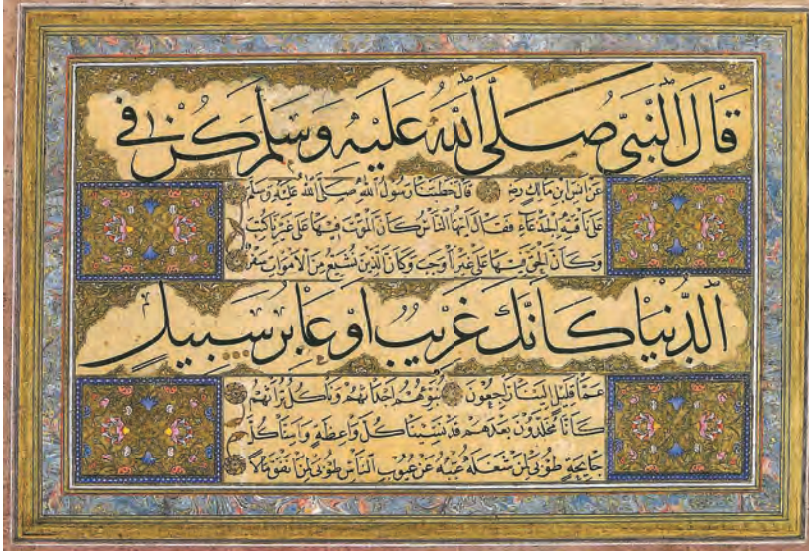 قَالَ النَّبِيُّ صَلَّى اللّٰهُ عَلَيْهِ وَسَلَّمَ كُنْ فِي
عَنْ اَنَسِ بْنِ مَالِكٍ رضه قَالَ خَطَبَنَا رَسُولُ اللّٰهِ صَلَّى اللّٰهُ عَلَيْهِ وَسَلَّمَ
عَلَى نَاقَتِهِ الْجَدْعَاءِ فَقَالَ اَيُّهَا النَّاسُ كَاَنَّ الْمَوْتَ فِيهَا عَلَى غَيْرِنَا كُتِبَ
وَكَاَنَّ الْحَقَّ فِيهَا عَلَى غَيْرِنَا وَجَبَ وَكَاَنَّ الَّذِينَ نُشَيِّعُ مِنَ الْاَمْوَاتِ سَفْرٌ
الدُّنْيَا كَاَنَّكَ غَرِيبٌ اَوْ عَابِرُ سَبِيلٍ
عَمَّا قَلِيلٍ اِلَيْنَا رَاجِعُونَ نُبَوِّئُهُمْ اَجْدَاثَهُمْ وَنَأْكُلُ تُرَاثَهُمْ
كَاَنَّا مُخَلَّدُونَ بَعْدَهُمْ قَدْ نَسِينَا كُلَّ وَاعِظَةٍ وَاَمِنَّا كُلَّ
جَايِحَةٍ طُوبَى لِمَنْ شَغَلَهُ عَيْبُهُ عَنْ عُيُوبِ النَّاسِ طُوبَى لِمَنْ اَنْفَقَ مَالًا